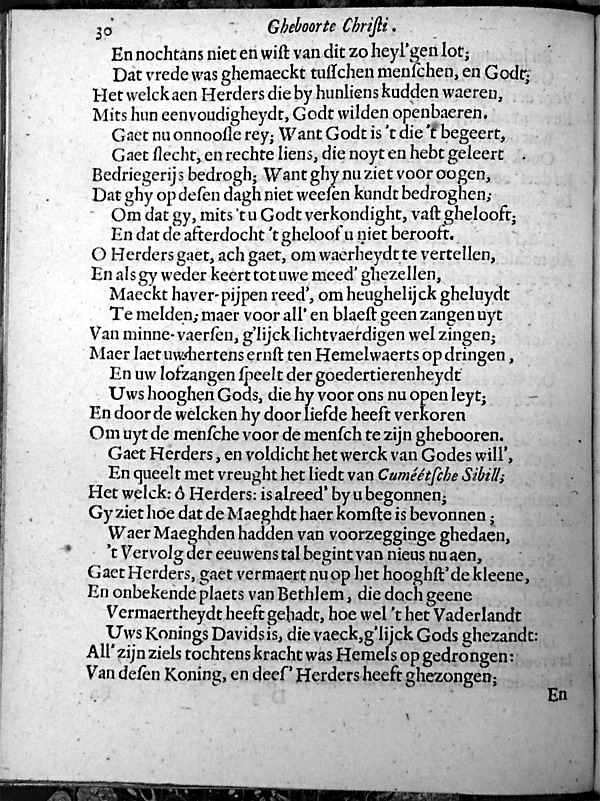 30 Gheboorte Chriſti.
En nochtans niet en wiſt van dit zo heyl'gen lot;
Dat vrede was ghemaeckt tuſſchen menſchen, en Godt;
Het welck aen Herders die by hunliens kudden waeren,
Mits hun eenvoudigheydt, Godt wilden openbaeren.
Gaet nu onnooſle rey; Want Godt is 't die 't begeert,
Gaet ſlecht, en rechte liens, die noyt en hebt geleert
Bedriegerijs bedrogh; Want ghy nu ziet voor oogen,
Dat ghy op deſen dagh niet weeſen kundt bedroghen;
Om dat gy, mits 't u Godt verkondight, vaſt ghelooft;
En dat de afterdocht 't gheloof u niet berooft.
O Herders gaet, ach gaet, om waerheydt te vertellen,
En als gy weder keert tot uwe meed' ghezellen,
Maeckt haver-pijpen reed', om heughelijck gheluydt
Te melden; maer voor all' en blaeſt geen zangen uyt
Van minne-vaerſen, g'lijck lichtvaerdigen wel zingen;
Maer laet uws hertens ernſt ten Hemelwaerts op dringen,
En uw lofzangen ſpeelt der goedertierenheydt
Uws hooghen Gods, die hy voor ons nu open leyt;
En door de welcken hy door liefde heeft verkoren
Om uyt de menſche voor de menſch te zijn ghebooren.
Gaet Herders, en voldicht het werck van Godes will',
En queelt met vreught het liedt van Cuméétſche Sibill;
Het welck: ô Herders: is alreed' by u begonnen;
Gy ziet hoe dat de Maeghdt haer komſte is bevonnen;
Waer Maeghden hadden van voorzegginge ghedaen,
't Vervolg der eeuwens tal begint van nieus nu aen,
Gaet Herders, gaet vermaert nu op het hooghſt' de kleene,
En onbekende plaets van Bethlem, die doch geene
Vermaertheydt heeft gehadt, hoe wel 't het Vaderlandt
Uws Konings Davids is, die vaeck, g'lijck Gods ghezandt:
All' zijn ziels tochtens kracht was Hemels op gedrongen:
Van deſen Koning, en deeſ' Herders heeft ghezongen;
En